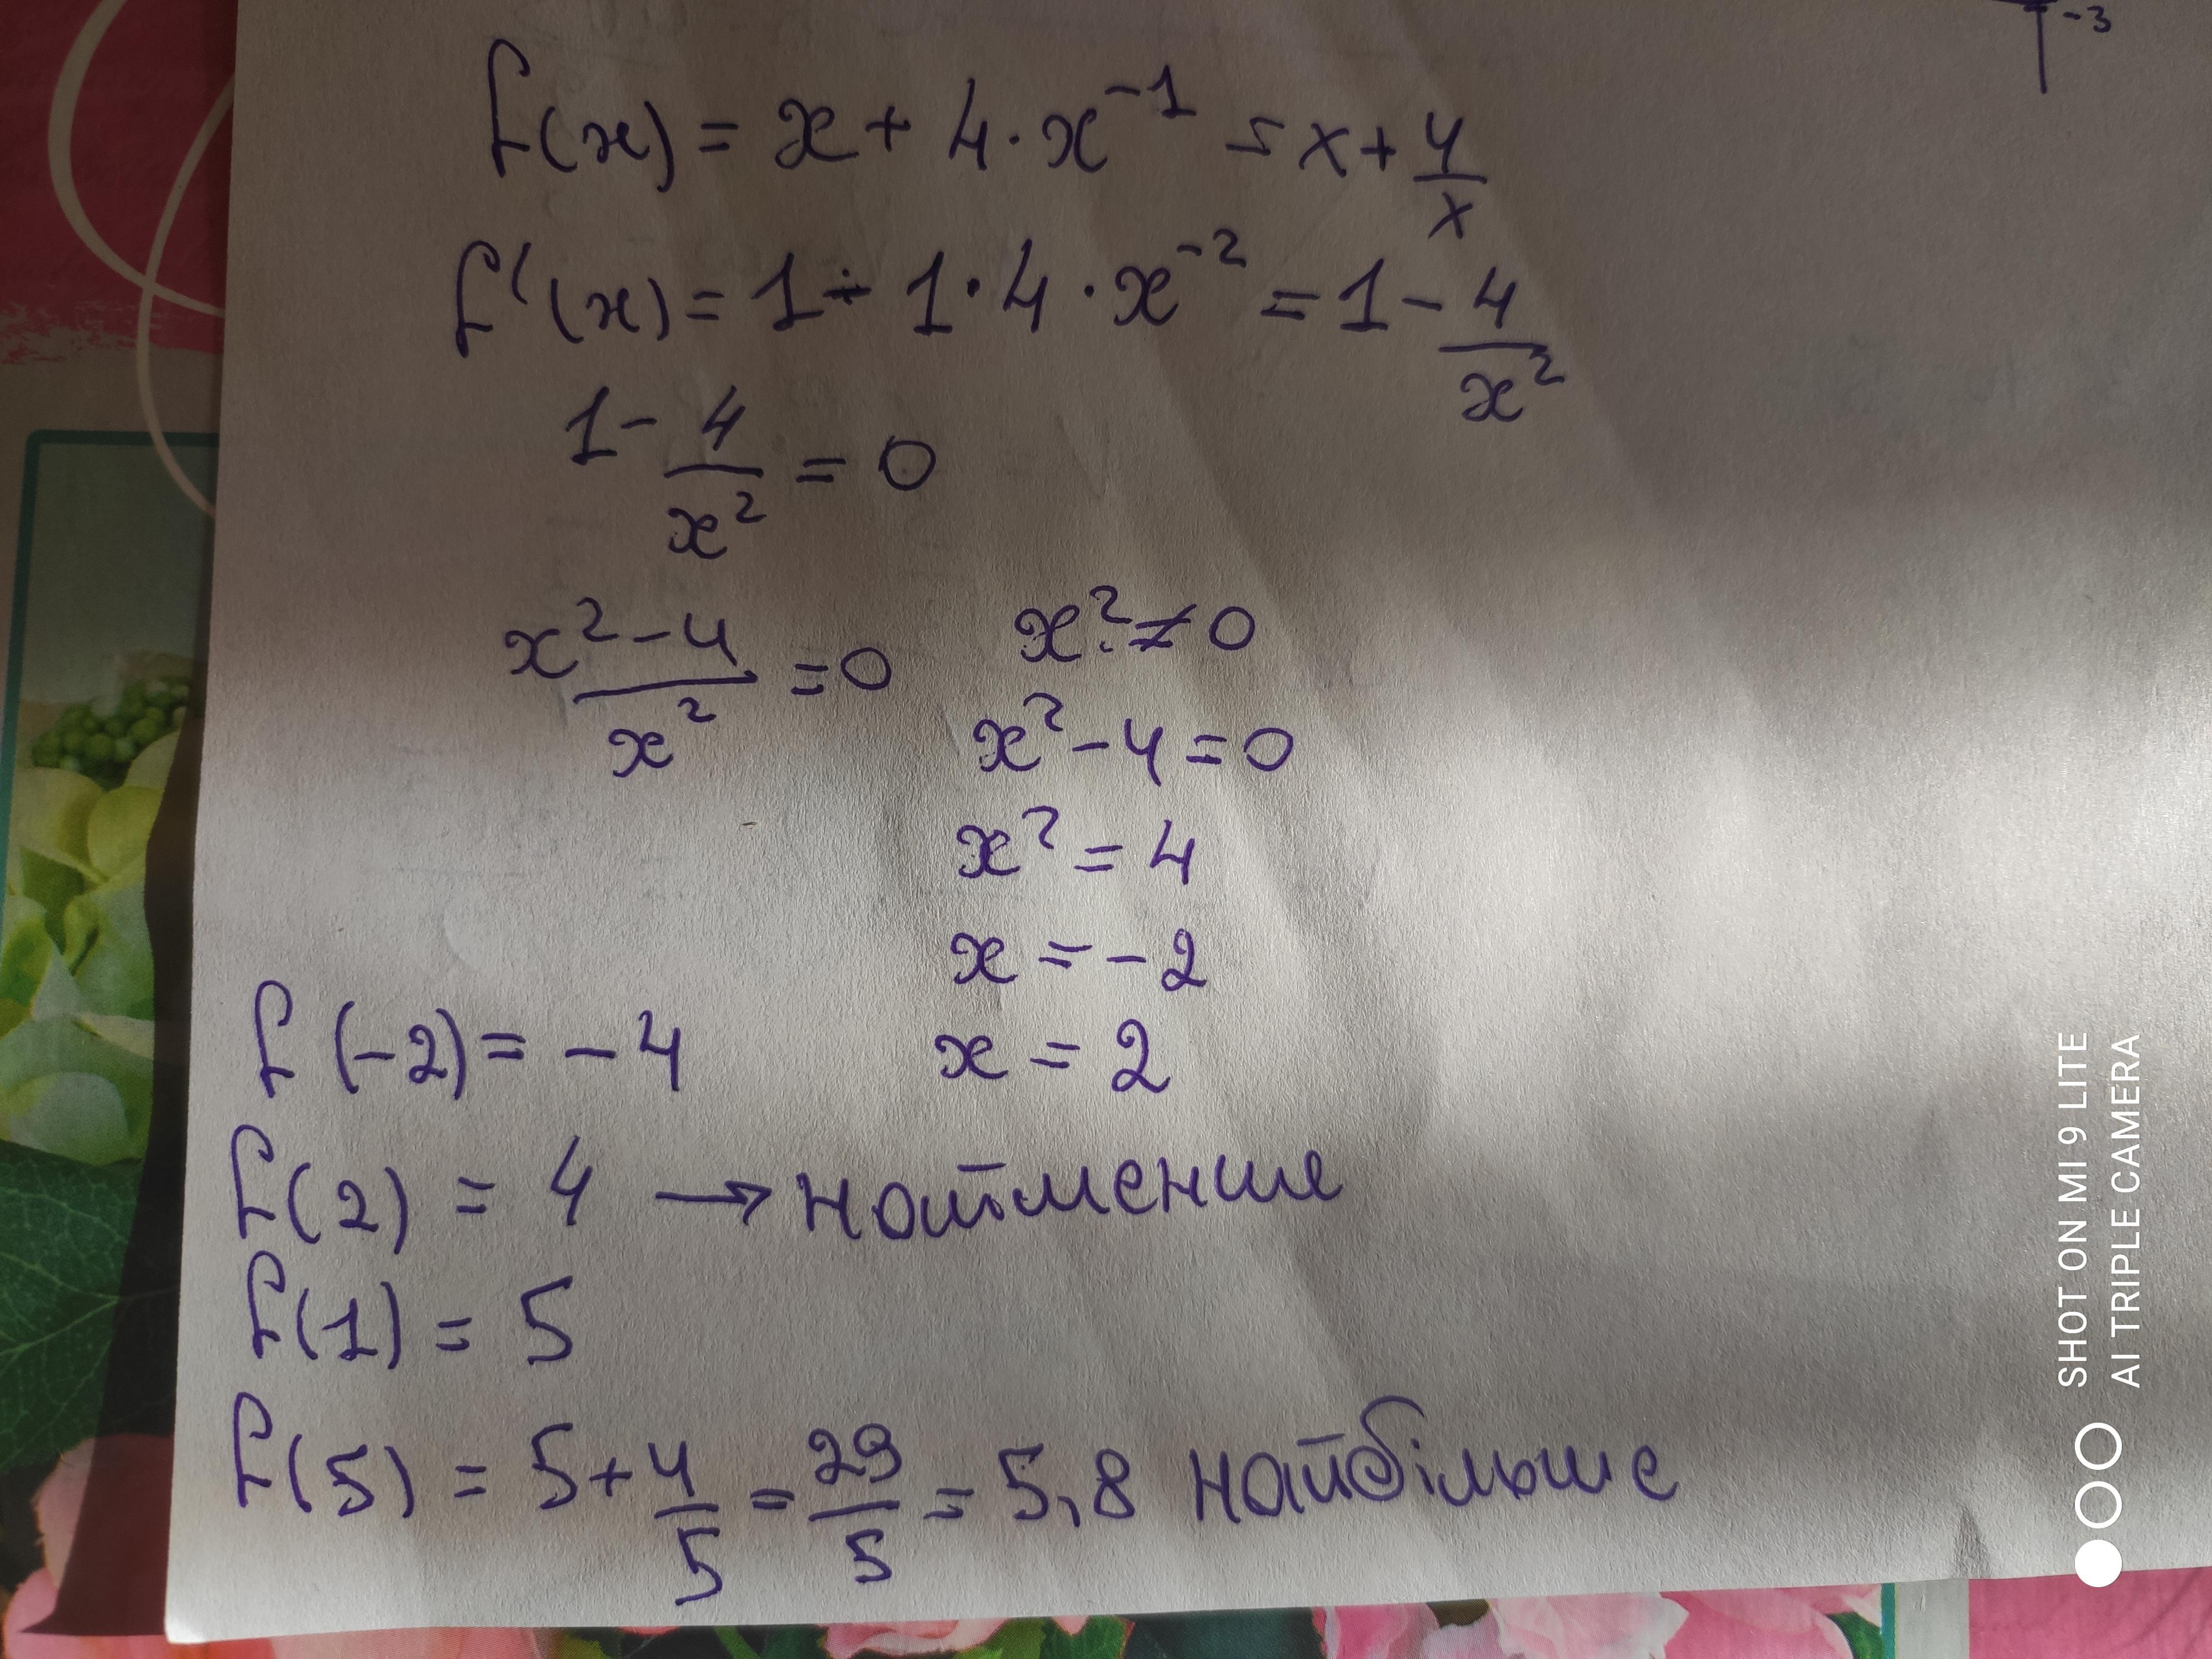 -3
f(x) = x + 4·x⁻¹ = x + 4/x
f'(x) = 1 - 1·4·x⁻² = 1 - 4/x²
1 - 4/x² = 0
(x² - 4)/x² = 0
x² ≠ 0
x² - 4 = 0
x² = 4
x = -2
x = 2
f(-2) = -4
f(2) = 4 → найменше
f(1) = 5
f(5) = 5 + 4/5 = 29/5 = 5,8 найбільше
SHOT ON MI 9 LITE
AI TRIPLE CAMERA